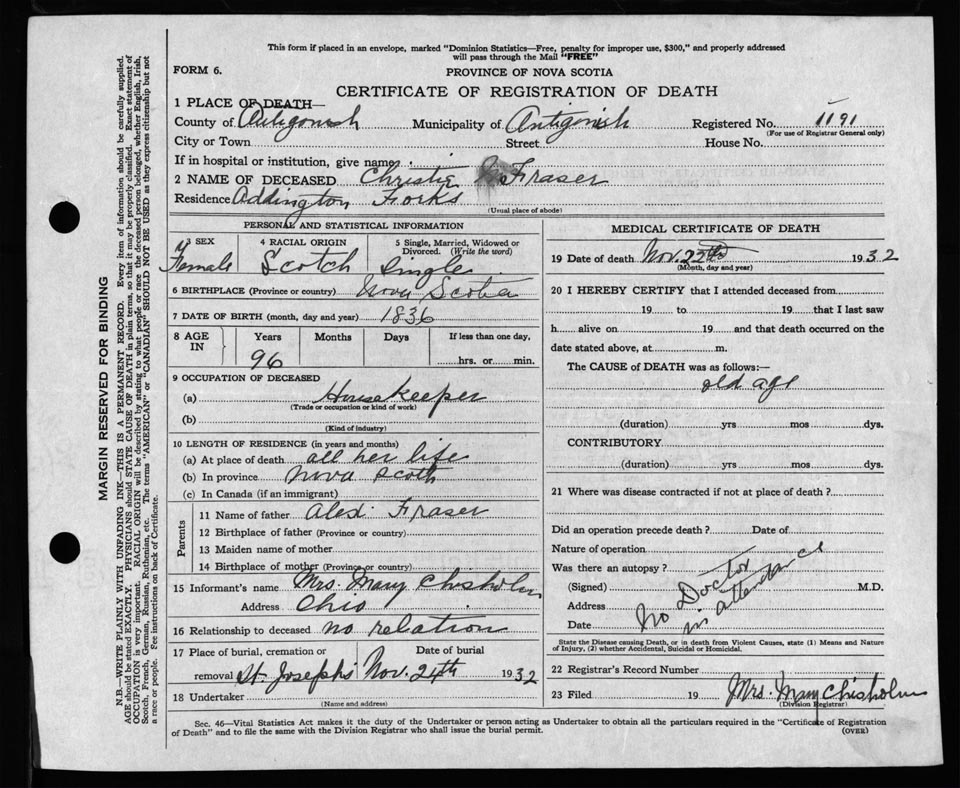 This form if placed in an envelope, marked "Dominion Statistics—Free, penalty for improper use, $300," and properly addressed
will pass through the Mail "FREE"
FORM 6.
PROVINCE OF NOVA SCOTIA
CERTIFICATE OF REGISTRATION OF DEATH
1 PLACE OF DEATH—
County of Antigonish Municipality of Antigonish Registered No. 1191
(For use of Registrar General only)
City or Town Street House No.
If in hospital or institution, give name
2 NAME OF DECEASED Christie Fraser
Residence Addington Forks
(Usual place of abode)
PERSONAL AND STATISTICAL INFORMATION
3 SEX 4 RACIAL ORIGIN 5 Single, Married, Widowed or
Divorced. (Write the word)
Female Scotch Single
6 BIRTHPLACE (Province or country) Nova Scotia
7 DATE OF BIRTH (month, day and year) 1836
8 AGE IN Years Months Days If less than one day,
96 hrs. or min.
9 OCCUPATION OF DECEASED
(a) House Keeper
(Trade or occupation or kind of work)
(b)
(Kind of industry)
10 LENGTH OF RESIDENCE (in years and months)
(a) At place of death all her life
(b) In province Nova Scotia
(c) In Canada (if an immigrant)
Parents
11 Name of father Alex. Fraser
12 Birthplace of father (Province or country)
13 Maiden name of mother
14 Birthplace of mother (Province or country)
15 Informant's name Mrs. Mary Chisholm
Address Ohio
16 Relationship to deceased no relation
17 Place of burial, cremation or Date of burial
removal St. Joseph's Nov. 24th 1932
18 Undertaker
(Name and address)
MEDICAL CERTIFICATE OF DEATH
19 Date of death Nov. 22th 1932
(Month, day and year)
20 I HEREBY CERTIFY that I attended deceased from
19 to 19 that I last saw
h alive on 19 and that death occurred on the
date stated above, at m.
The CAUSE of DEATH was as follows:—
old age
(duration) yrs mos dys.
CONTRIBUTORY
(duration) yrs mos dys.
21 Where was disease contracted if not at place of death?
Did an operation precede death? Date of
Nature of operation
Was there an autopsy?
(Signed) M.D.
Address
Date
No Doctor
in attendance
State the Disease causing Death, or in death from Violent Causes, state (1) Means and Nature
of Injury, (2) whether Accidental, Suicidal or Homicidal.
22 Registrar's Record Number
23 Filed 19 Mrs. Mary Chisholm
(Division Registrar)
Sec. 46—Vital Statistics Act makes it the duty of the Undertaker or person acting as Undertaker to obtain all the particulars required in the "Certificate of Registration
of Death" and to file the same with the Division Registrar who shall issue the burial permit. (OVER)
MARGIN RESERVED FOR BINDING
N.B.—WRITE PLAINLY WITH UNFADING INK—THIS IS A PERMANENT RECORD. Every item of information should be carefully supplied.
AGE should be stated EXACTLY. PHYSICIANS should STATE CAUSE OF DEATH in plain terms, so that it may be properly classified. Exact statement of
OCCUPATION is very important. RACIAL ORIGIN will be described by stating to what people or race the deceased person belonged, whether English, Irish,
Scotch, French, German, Russian, Ruthenian, etc. The terms "AMERICAN" or "CANADIAN" SHOULD NOT BE USED as they express citizenship but not
a race or people. See instructions on back of Certificate.